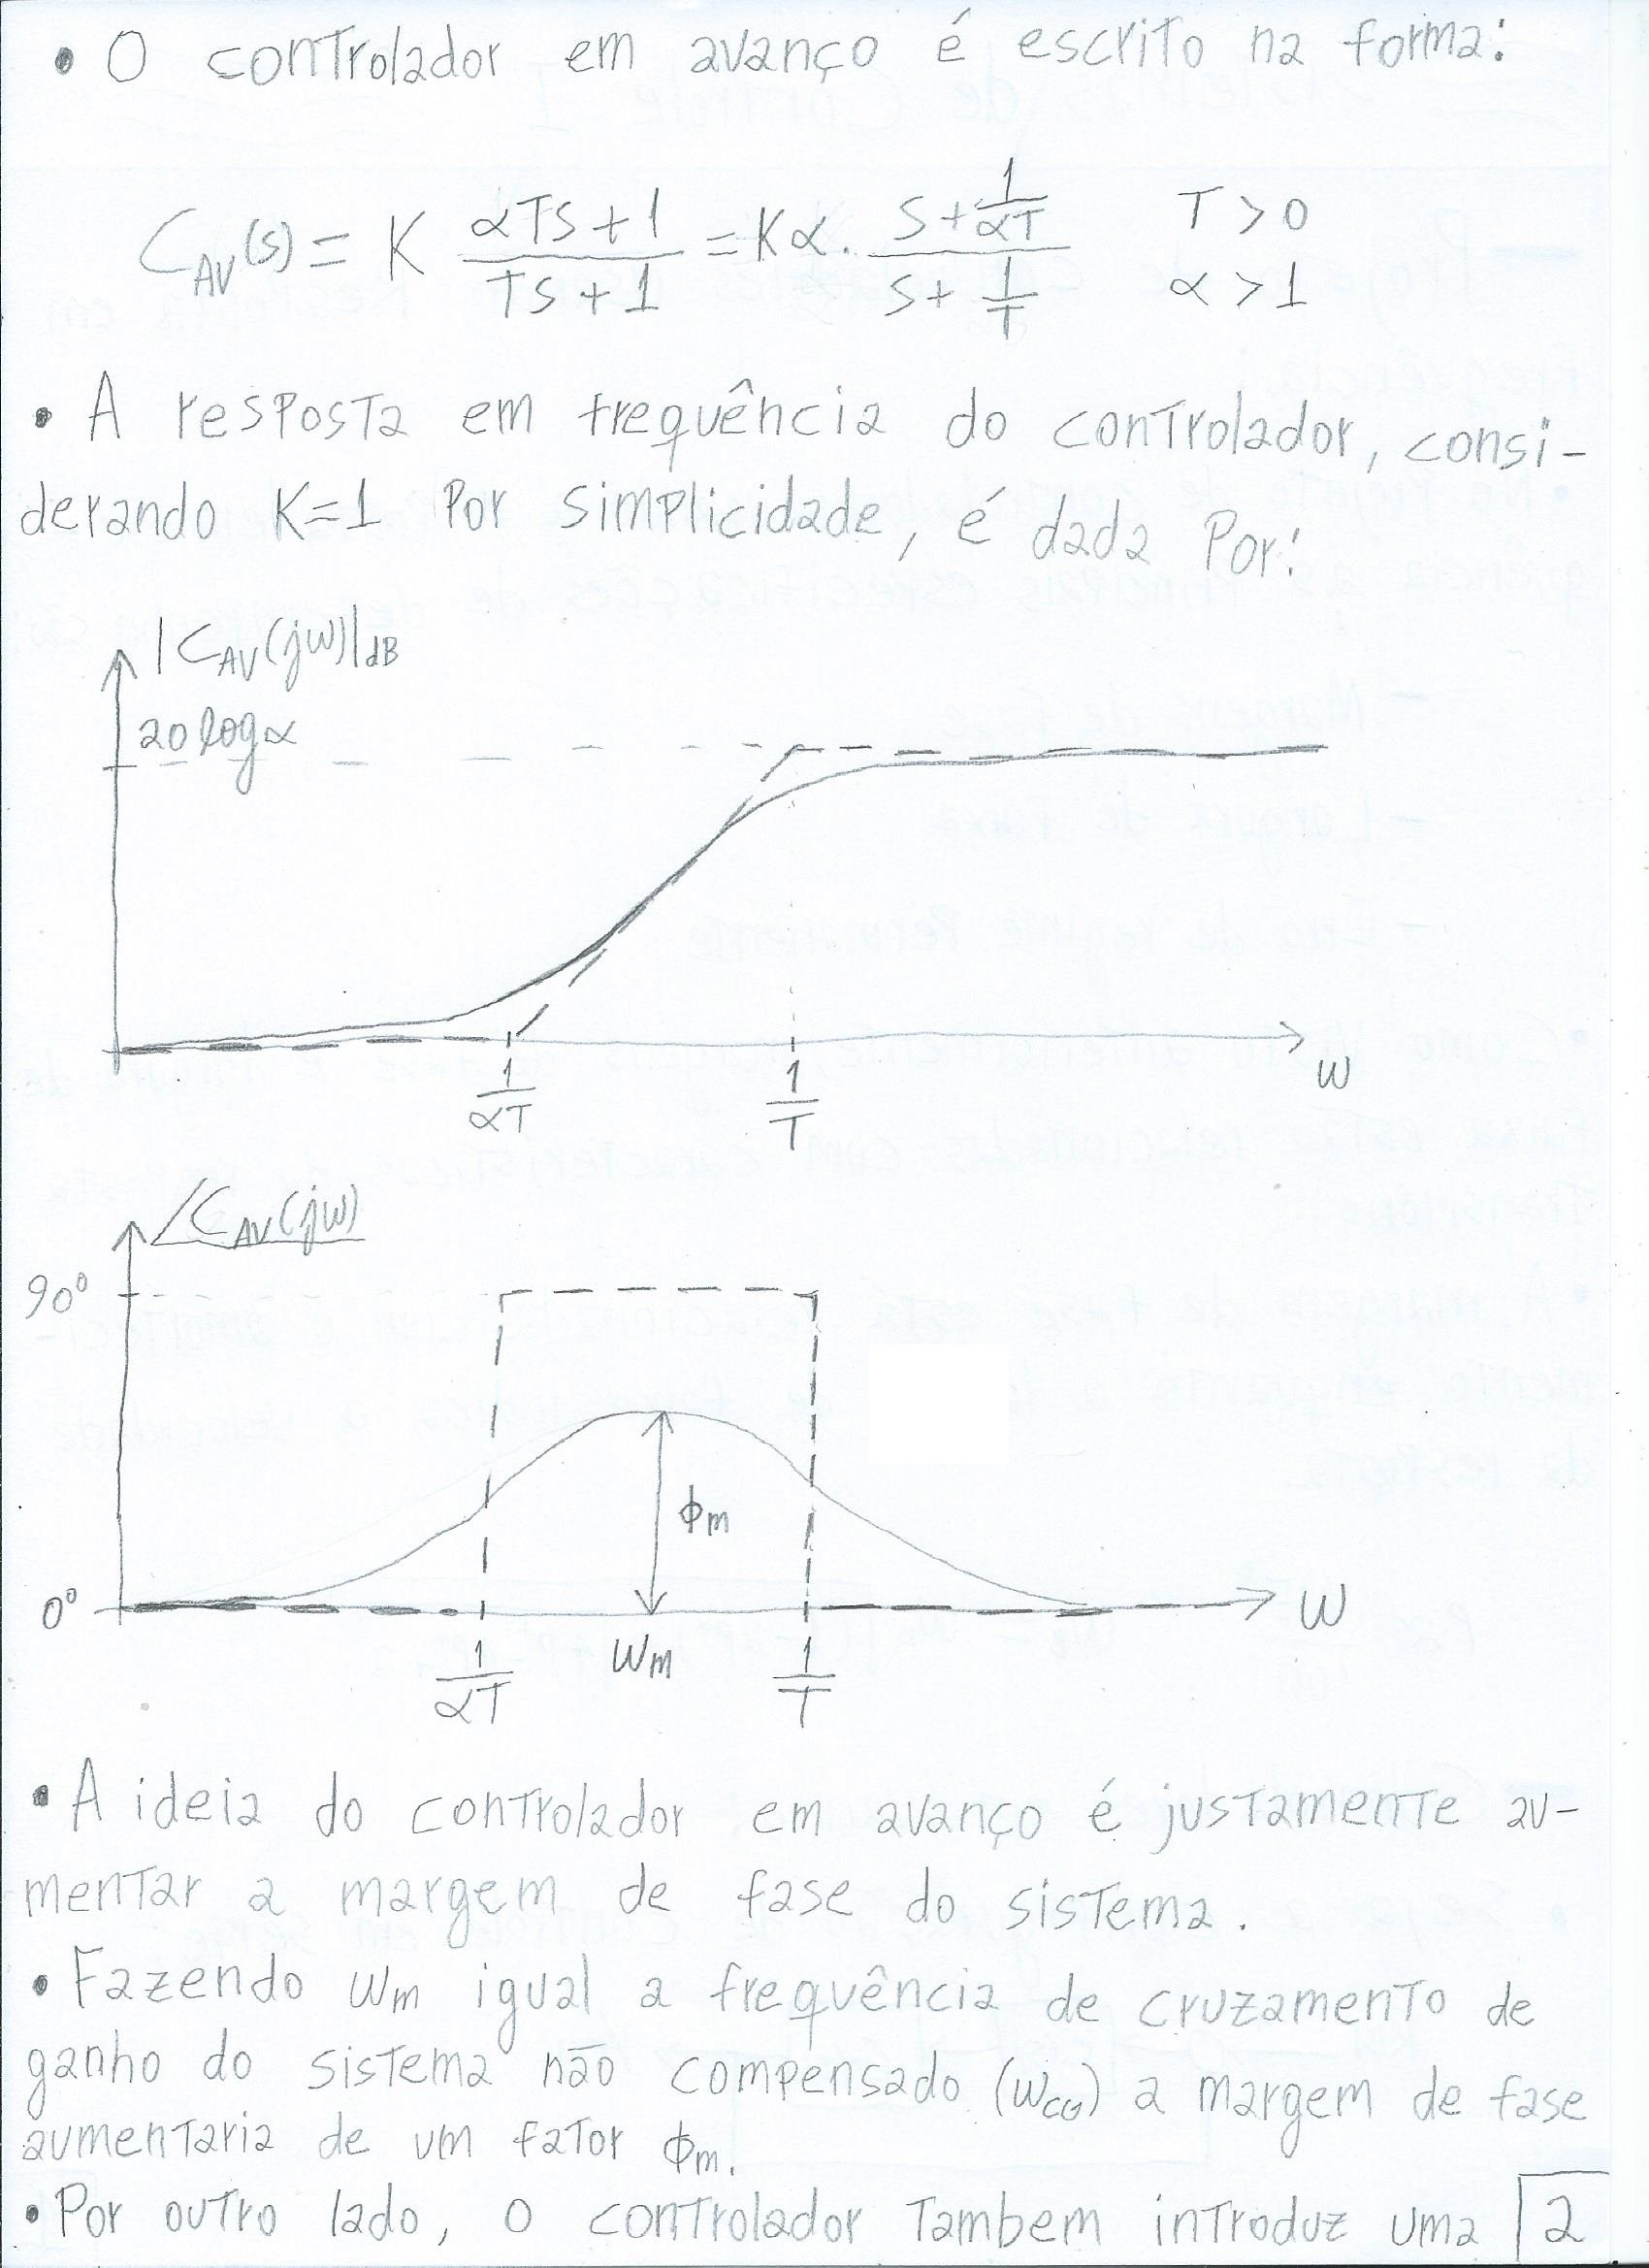 • O controlador em avanço é escrito na forma:
C_AV(s) = K (αTs+1)/(Ts+1) = Kα. (s+1/(αT))/(s+1/T)   T>0   α>1
• A resposta em frequência do controlador, consi-
derando K=1 Por simplicidade, é dada Por:
|C_AV(jω)|dB
20 log α
1/(αT)
1/T
ω
∠C_AV(jω)
90°
φm
0°
ω
1/(αT)
ωm
1/T
• A ideia do controlador em avanço é justamente au-
mentar a margem de fase do sistema.
• Fazendo ωm igual a frequência de cruzamento de
ganho do sistema não compensado (ωCG) a margem de fase
aumentaria de um fator φm.
• Por outro lado, o controlador Tambem introduz uma
2